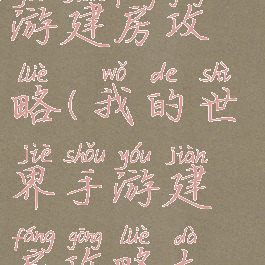 游建房攻
lüè wǒ de shì
略(我的世
jiè shǒu yóu jiàn
界手游建
fáng gōng lüè dà